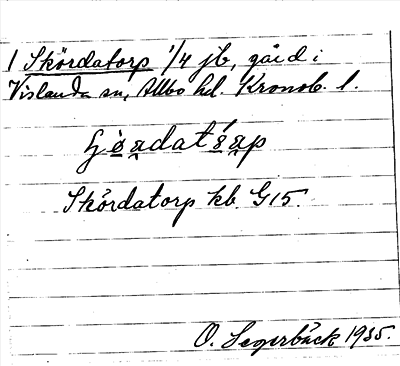 1 Skördatorp 1/4 jb, gård i
Vislanda sn, Allbo hd. Kronob. l.
Skördatorp kb. G15.
O. Segerbäck 1935.